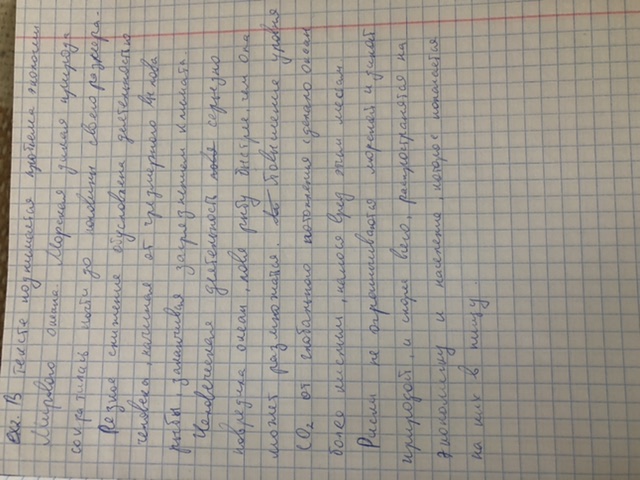 В тексте поднимается проблема экологии
Мирового океана. Морская дикая природа
сократилась почти до половины своего размера.
Резкое снижение обусловлено деятельностью
человека, начиная от чрезмерного вылова
рыбы, заканчивая загрязнением климата.
Человеческая деятельность серьезно
повредила океан, ловя рыбу быстрее, чем она
может размножатся. Повышение уровня
CO₂ от глобального потопления сделало океан
более кислым, нанося вред этим массам
Риски не ограничиваются морской и дикой
природой, и скорее всего, распространятся на
экономику и население, которое полагается
на них в пищу.